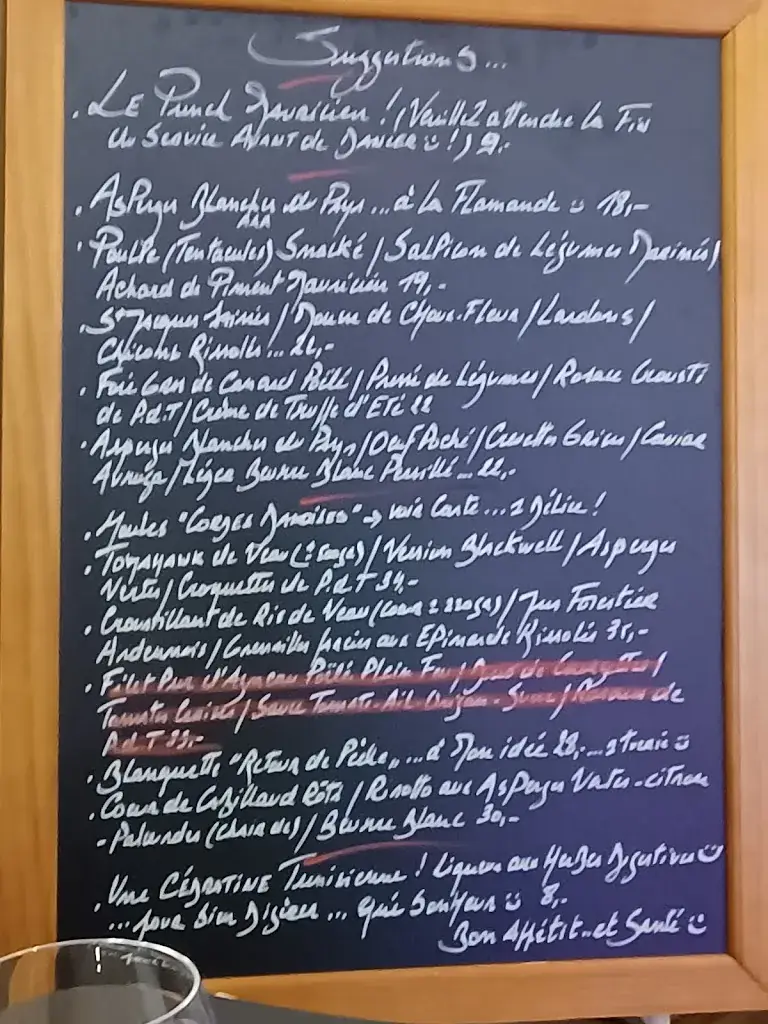 Suggestions...
. LE Punch Mauricien ! (Veuillez attendre la Fin
du Service AVANT de DANSER ! ) 9.-
. Asperges Blanches du Pays... à la Flamande 18,-
. Poulpe (Tentacules) Snacké / Salpicon de Légumes Marinés /
Achard de Piment Mauricien 19,-
. St Jacques / de Choux-Fleur / Lardons /
Chicons Rissolés...
. Foie Gras de Canard Poêlé / de Légumes / Rosace Crousti
de P.d.T / Crème de Truffe d'Eté 22
. Asperges Blanches du Pays / Oeuf Poché / Crevettes Grises / Caviar
Avruga / Léger Beurre Blanc Persillé ... 22,-
. Moules "GORGES → voir Carte... 1 Délice !
. de Veau / Version Blackwell / Asperges
Vertes / Croquettes de P.d.T 34,-
. Croustillant de Ris de Veau / Jus Forestier
Ardennais / Grenailles aux Epinards Rissolés 35,-
. Filet Pur d'Agneau Poêlé Plein Feu / de Courgettes /
Tomates Cerises / Sauce Tomate-Ail-Origan- / de
P.d.T 33,-
. Blanquette "Retour de Pêche"... à Mon idée 28,-
. Coeur de Cabillaud Rôti / Risotto aux Asperges Vertes-citron
- Palourdes (Chair de) / Beurre Blanc 30,-
. Une CÉDRATINE Tunisienne ! Liqueur aux Herbes Digestives
... pour bien Digérer ... que bonheur 8,-
Bon Appétit..et Santé